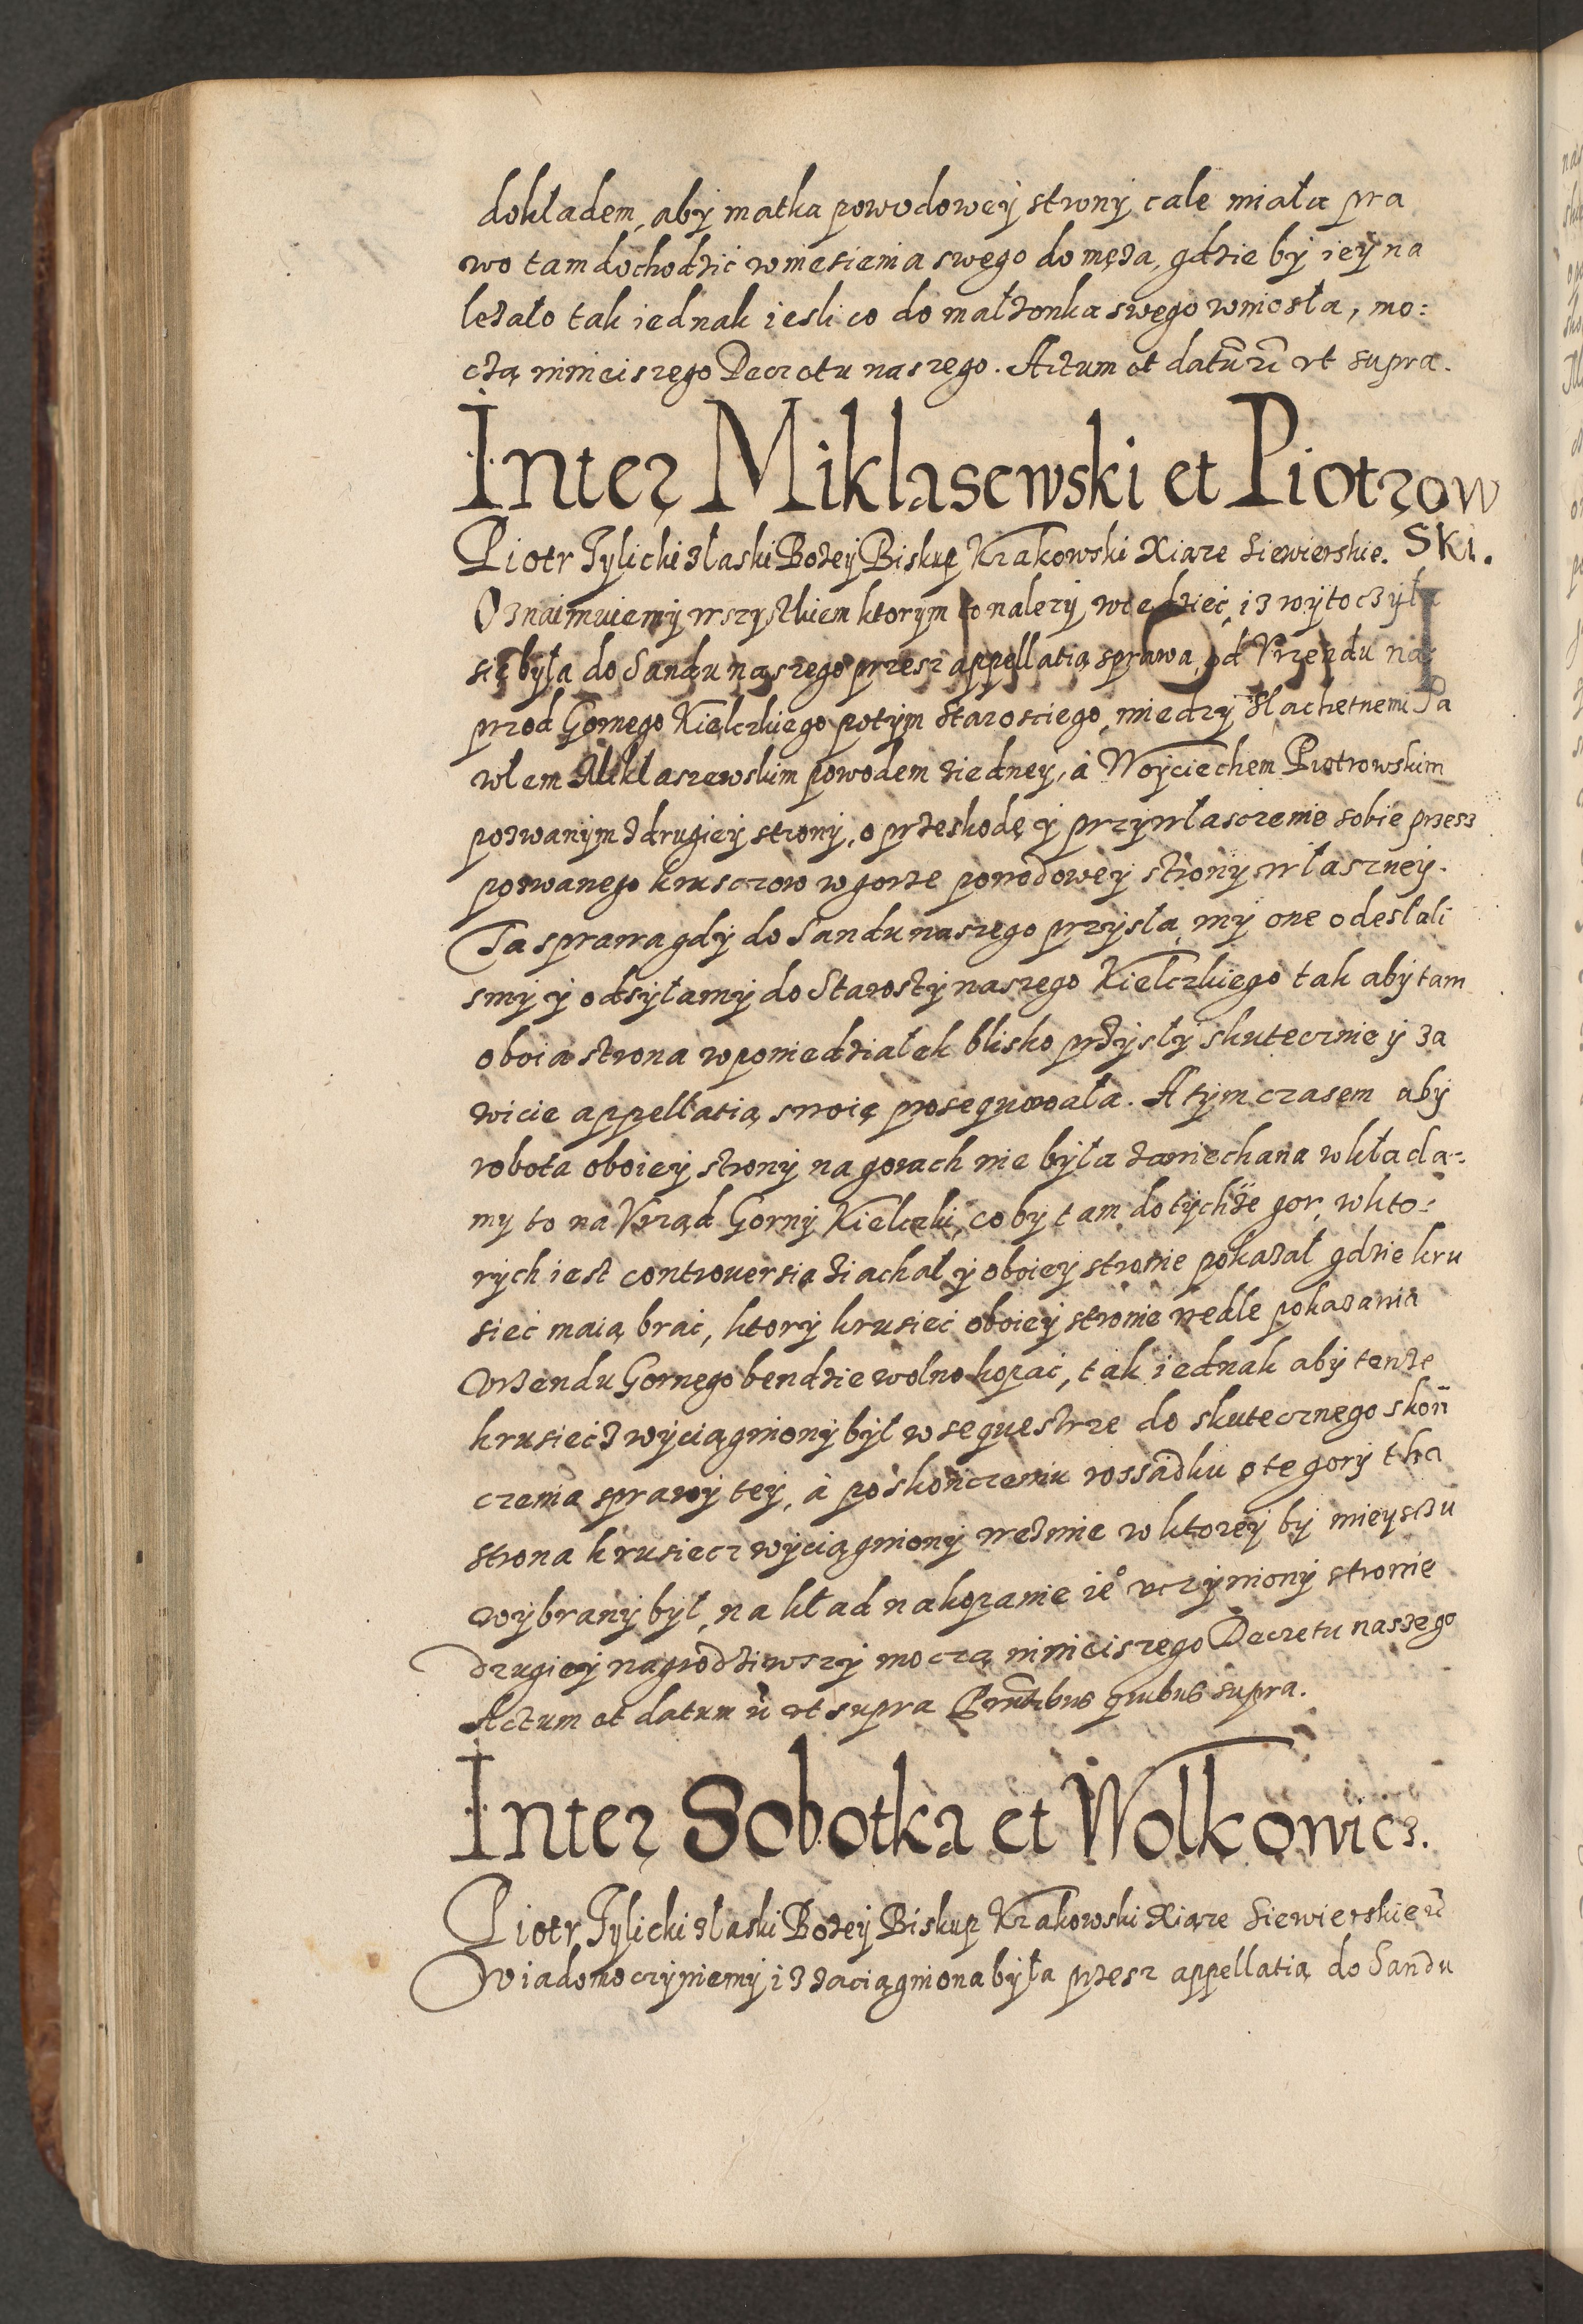 dokładem, aby matka powodowey strony cale miała pra
wo tam dochodzić wniesienia swego do męża, gdzie by iey na
leżało tak iednak iesli co do małżonka swego wniosła, mo:
czą ninieiszego Decretu naszego. Actum et datum ut supra.
Inter Miklasewski et Piotrow
ski.
Piotr Tylicki z łaski Bożey Biskup Krakowski Xiąze Siewierskie.
Oznaimuiemy wszystkiem ktorym to nalezy wiedzieć, iz wytoczyła
się była do Sandu naszego przesz appellatią sprawa, od Vrzendu na
przod Gornego Kielczkiego potym Starosciego, miedzy Slachetnemi Pa
włem Miklaszewskim powodem ziedney, à Woyciechem Piotrowskim
pozwanym z drugiey strony, o przeskodę y przywłasczenie sobie przesz
pozwanego krusczow w gorze powodowey strony właszney.
Ta sprawa gdy do Sandu naszego przysła, my one odeslali
smy y odsyłamy do Starosty naszego Kielczkiego tak aby tam
oboia strona w poniedziałek blisko przysły skutecznie y za
wicie appellatią swoię prosequowała. A tym czasem aby
robota oboiey strony na gorach nie była zaniechana wkłada=
my to na Vrząd Gorny Kielczki, coby tam do tychże gor, w kto:
rych iest controuersia ziachał y oboiey stronie pokazał gdzie kru
siec maią brać, ktory krusiec oboiey stronie wedle pokazania
Vrzendu Gornego bendzie wolno kopać, tak iednak aby tenże
krusiec z wyciągniony był w sequestrze do skutecznego skoń
czenia sprawy tey, à po skonczeniu rossądku o te gory tha
strona krusiec z wyciągniony wezmie w ktorey by mieysczu
wybrany był, nakład na kopanie ie° vczyniony stronie
drugiey nagrodziwszy moczą ninieiszego Decretu naszego
Actum et datum ut supra Pntibus quibus supra.
Inter Sobotka et Wolkowicz.
Piotr Tylicki z łaski Bożey Biskup Krakowski Xiąze Siewierskie
Wiadomo czyniemy iz zaciągniona była przesz appellatią do Sandu